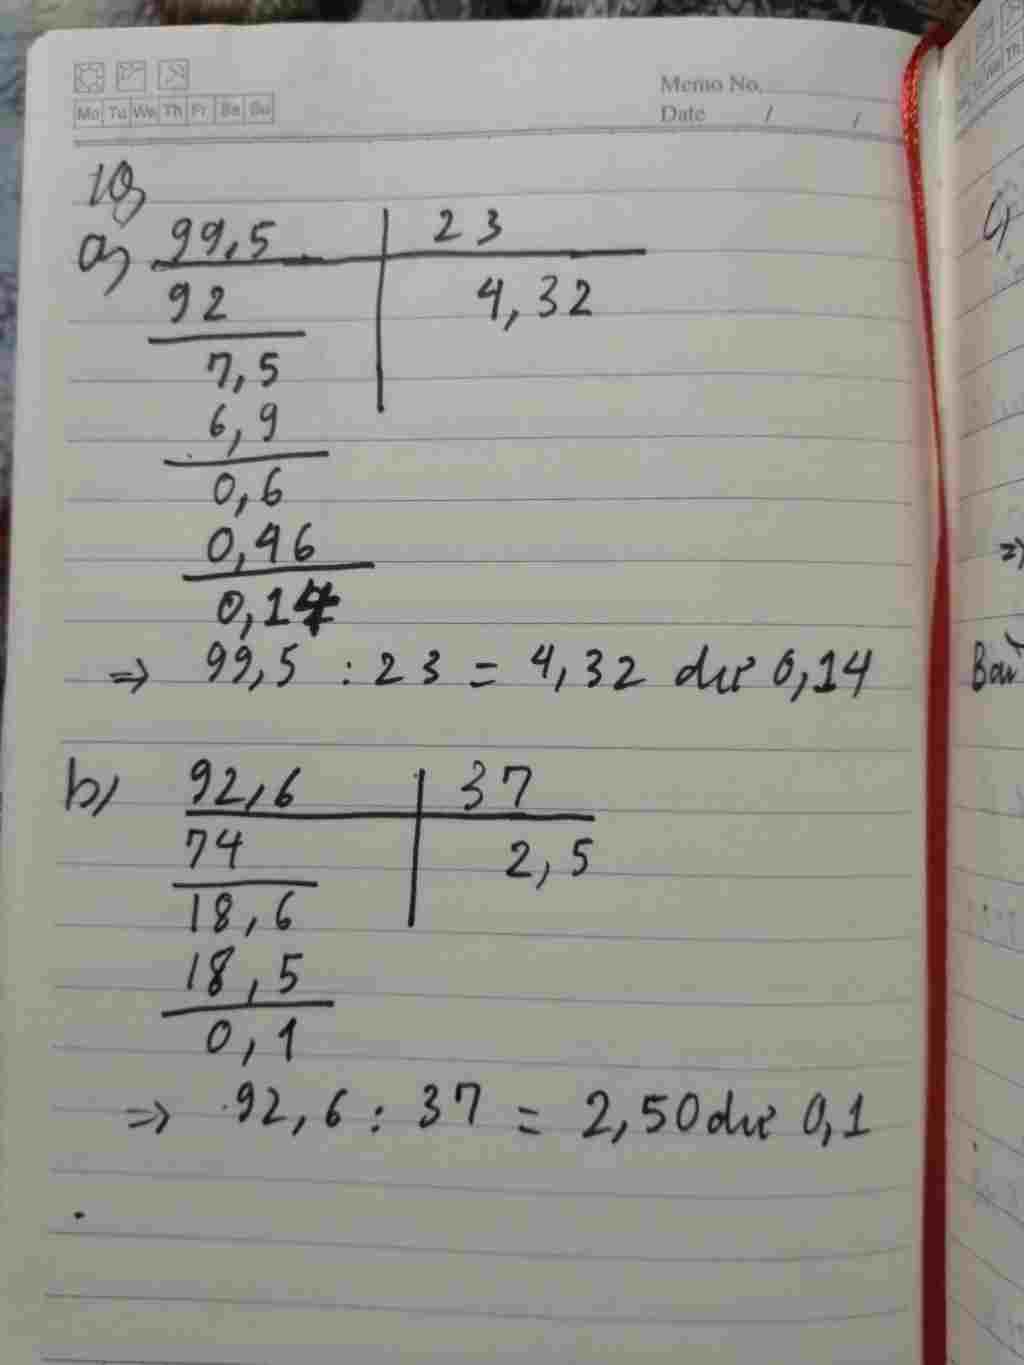 Memo No.
Mo Tu We Th Fr Sa Su
Date / /
10,
a, 99,5 23
92 4,32
7,5
6,9
0,6
0,46
0,14
=> 99,5 : 23 = 4,32 dư 0,14
b, 92,6 37
74 2,5
18,6
18,5
0,1
=> 92,6 : 37 = 2,50 dư 0,1
c,
=>
Bài